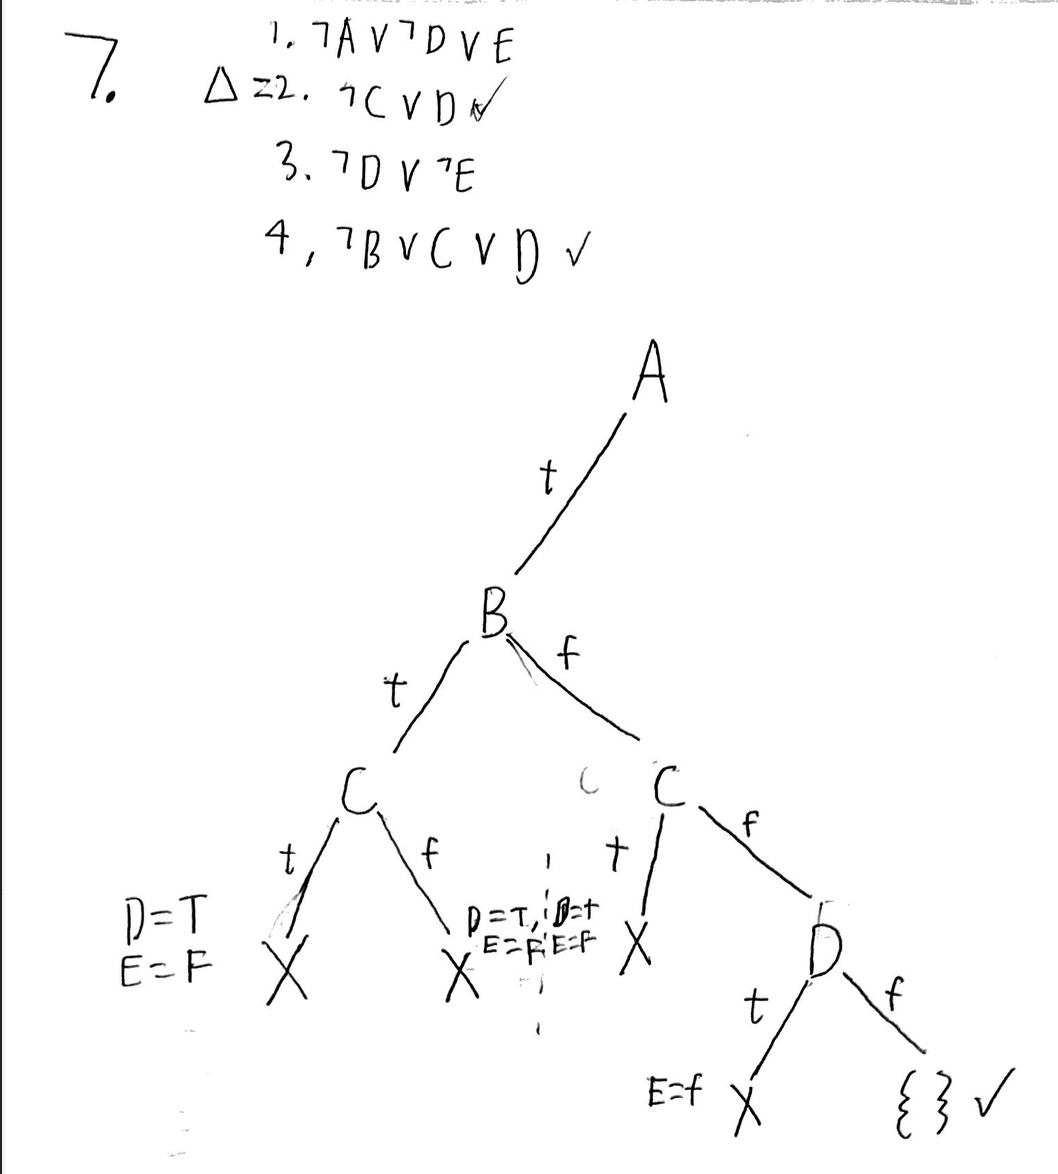 7.
1. ¬A ∨ ¬D ∨ E
Δ = 2. ¬C ∨ D ✓
3. ¬D ∨ ¬E
4, ¬B ∨ C ∨ D ✓
A
t
B
t f
C C C
t f t f
D=T
E=F X
D=T,
E=F X
D=t
E=F X
D
t f
E=f X { } ✓